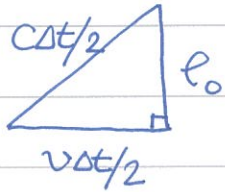 CΔt/2
ℓ₀
vΔt/2